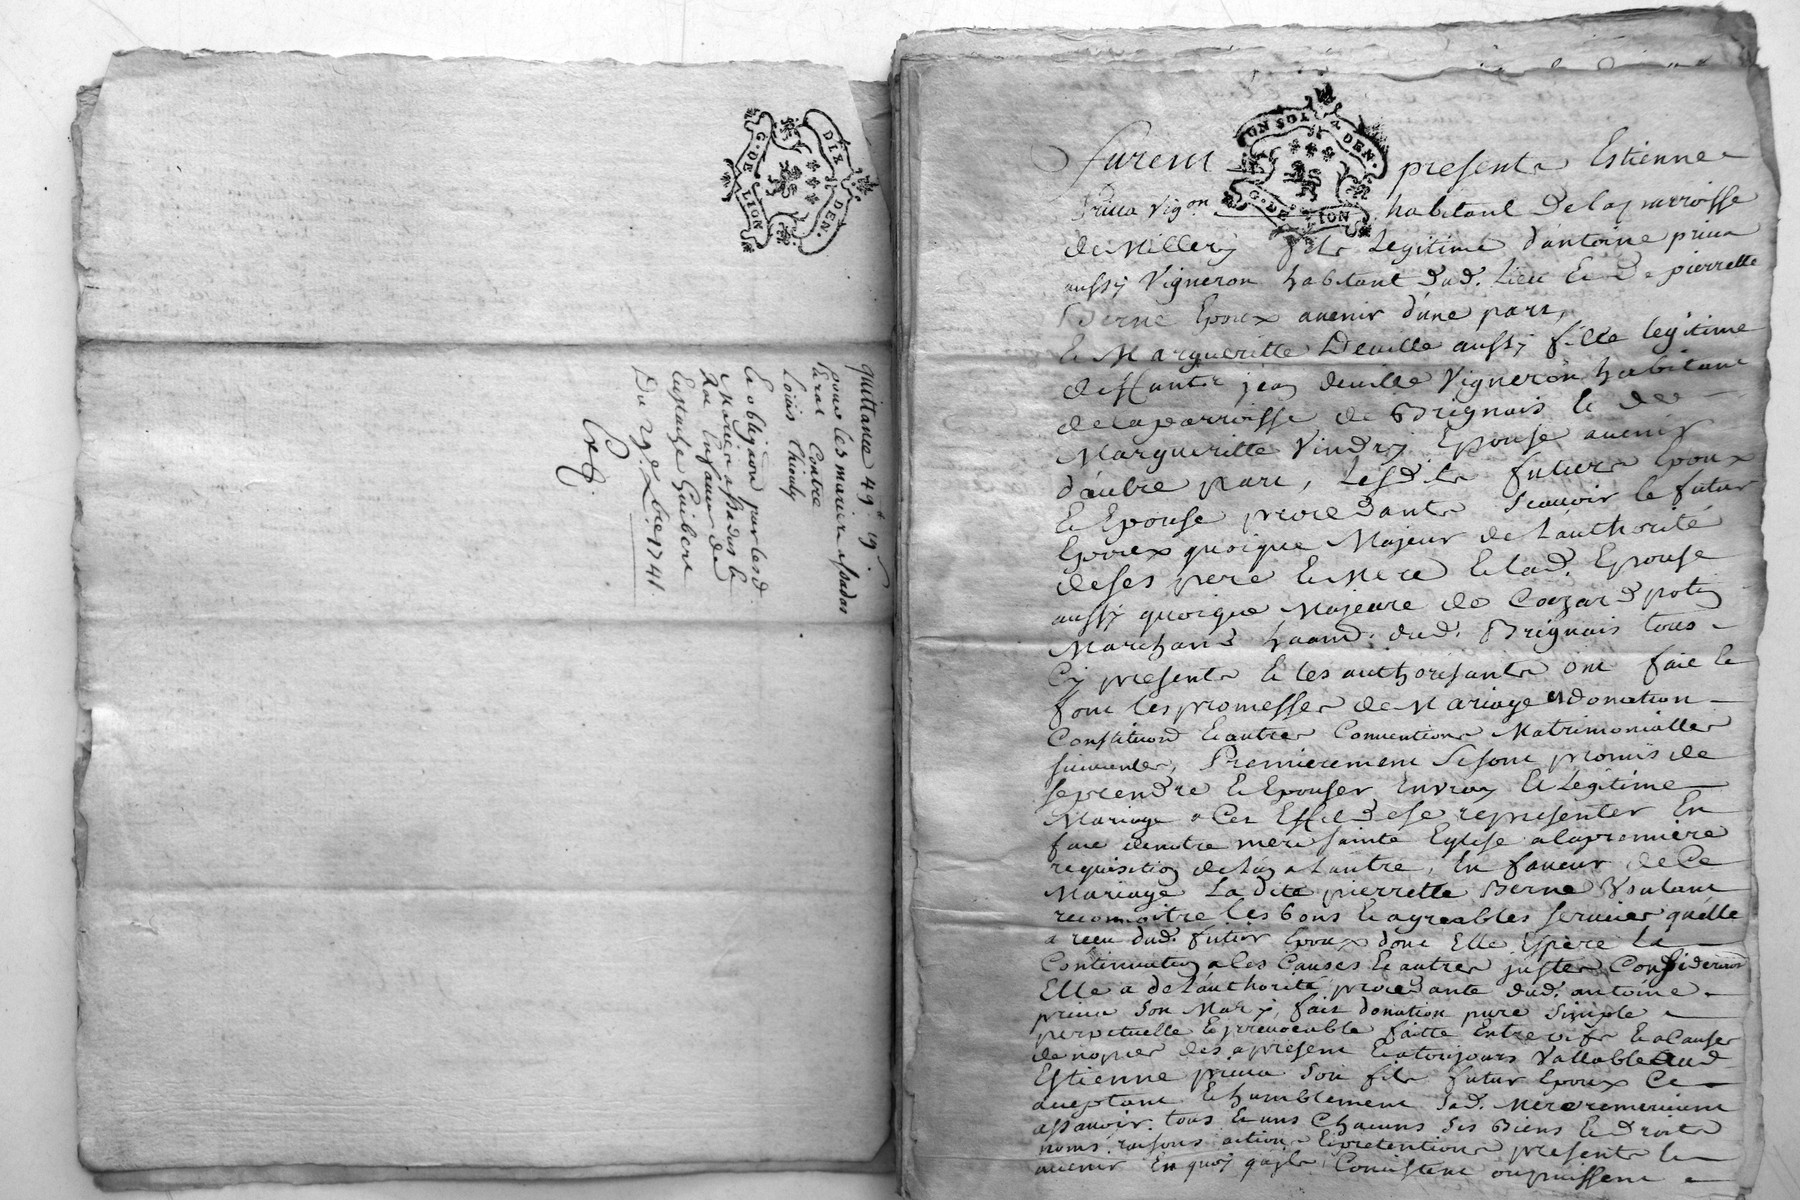 DIX DEN.
G. DE LION
quittance 49
pour les mariez
contre
Louis
et obligaon par les d.
Eustache Guibert
Du 29e xbre 1741
UN SOL 4 DEN.
G. DE LION
Furent presents Estienne
vigon habitant de la parroisse
de Millery fils legitime d'antoine
aussy vigneron habitant dud. Lieu et de pierrette
Berne Epoux avenir d'une part,
et Margueritte Deville aussy fille legitime
deffunts jean deville vigneron habitant
de la parroisse de Brignais et de
Margueritte Vindry Epouse avenir
d'autre part, lesdits futurs Epoux
et Epouse procedants scavoir le futur
Epoux quoique Majeur de L'authorité
de ses pere et Mere et lad. Epouse
aussy quoique Majeure de
Marchand dud. Brignais tous
Cy presents et les authorisants ont fait et
font les promesses de Mariage donation
Constituon et autres Conventions Matrimonialles
suivantes, Premierement se sont promis de
se prendre et Epouser En vray et Legitime
Mariage a Cet Effet de se representer En
face de notre mere sainte Eglise a la premiere
requisition de L'un a Lautre, En faveur de Ce
Mariage La dite pierrette Berne Voulant
reconnoitre les bons et agreables services quelle
a receu dud. futur Epoux dont Elle Espere la
Continuation a Ces Causes et autres justes Considerations
Elle a de l'authorité procedante dud. antoine
son Mary, fait donation pure simple
perpetuelle et irrevocable faitte Entre vifs et a Cause
de nopces des apresent et a toujours Vallable aud.
Estienne son fils futur Epoux Ce
aceptant et humblement sad. Mere remerciant
assavoir tous et uns Chacuns ses Biens et Droits
noms raisons actions et pretentions presents et
avenir En quoy qu'ils Consistent ou puissent